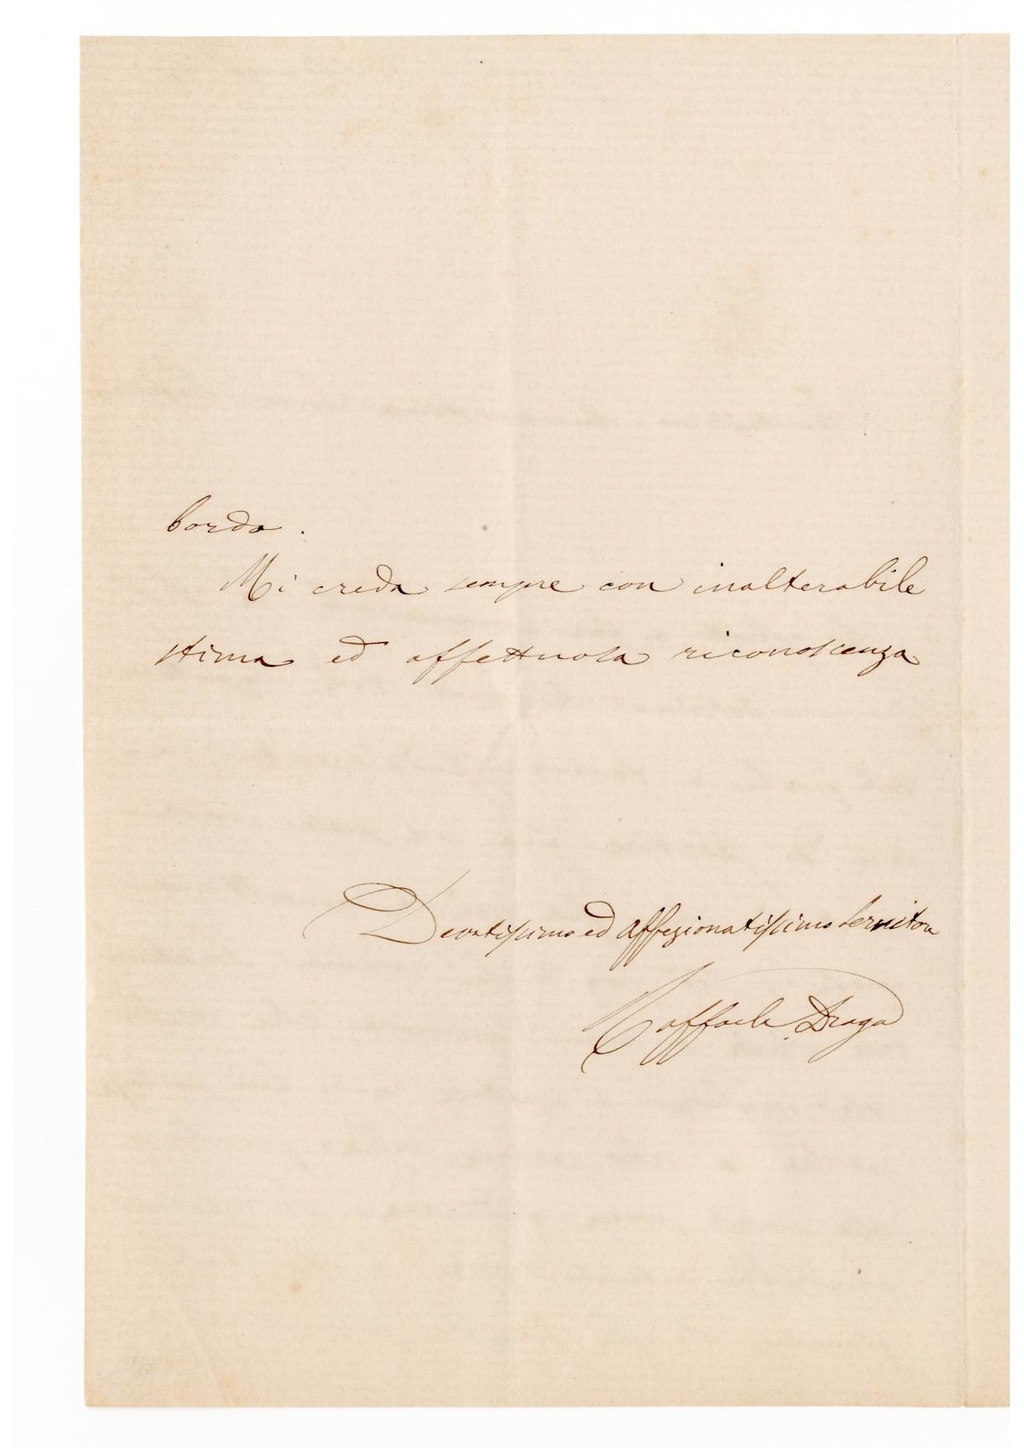 bordo.
Mi creda sempre con inalterabile
stima ed affettuosa riconoscenza
Devotissimo ed affezionatissimo servitore
Raffaele Drago